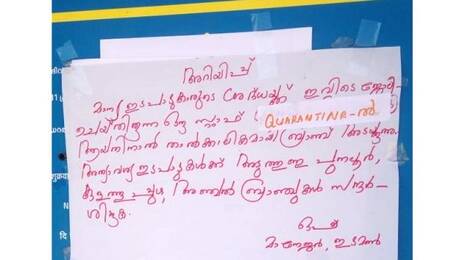 അറിയിപ്പ്
മാന്യ ഇടപാടുകാരുടെ ശ്രദ്ധയ്ക്ക് ഇവിടെ ജോലി-
ചെയ്തിരുന്ന ഒരു സ്റ്റാഫ് QUARANTINE-ൽ
ആയതിനാൽ താൽക്കാലികമായി ബ്രാഞ്ച് അടയ്ക്കുന്നു.
അത്യാവശ്യ ഇടപാടുകൾക്ക് അടുത്തുള്ള പുനലൂർ,
കുളത്തൂപ്പുഴ, അഞ്ചൽ ബ്രാഞ്ചുകൾ സന്ദർ-
ശിക്കുക.
ഒപ്പ്
മാനേജർ, ഇടമൺ